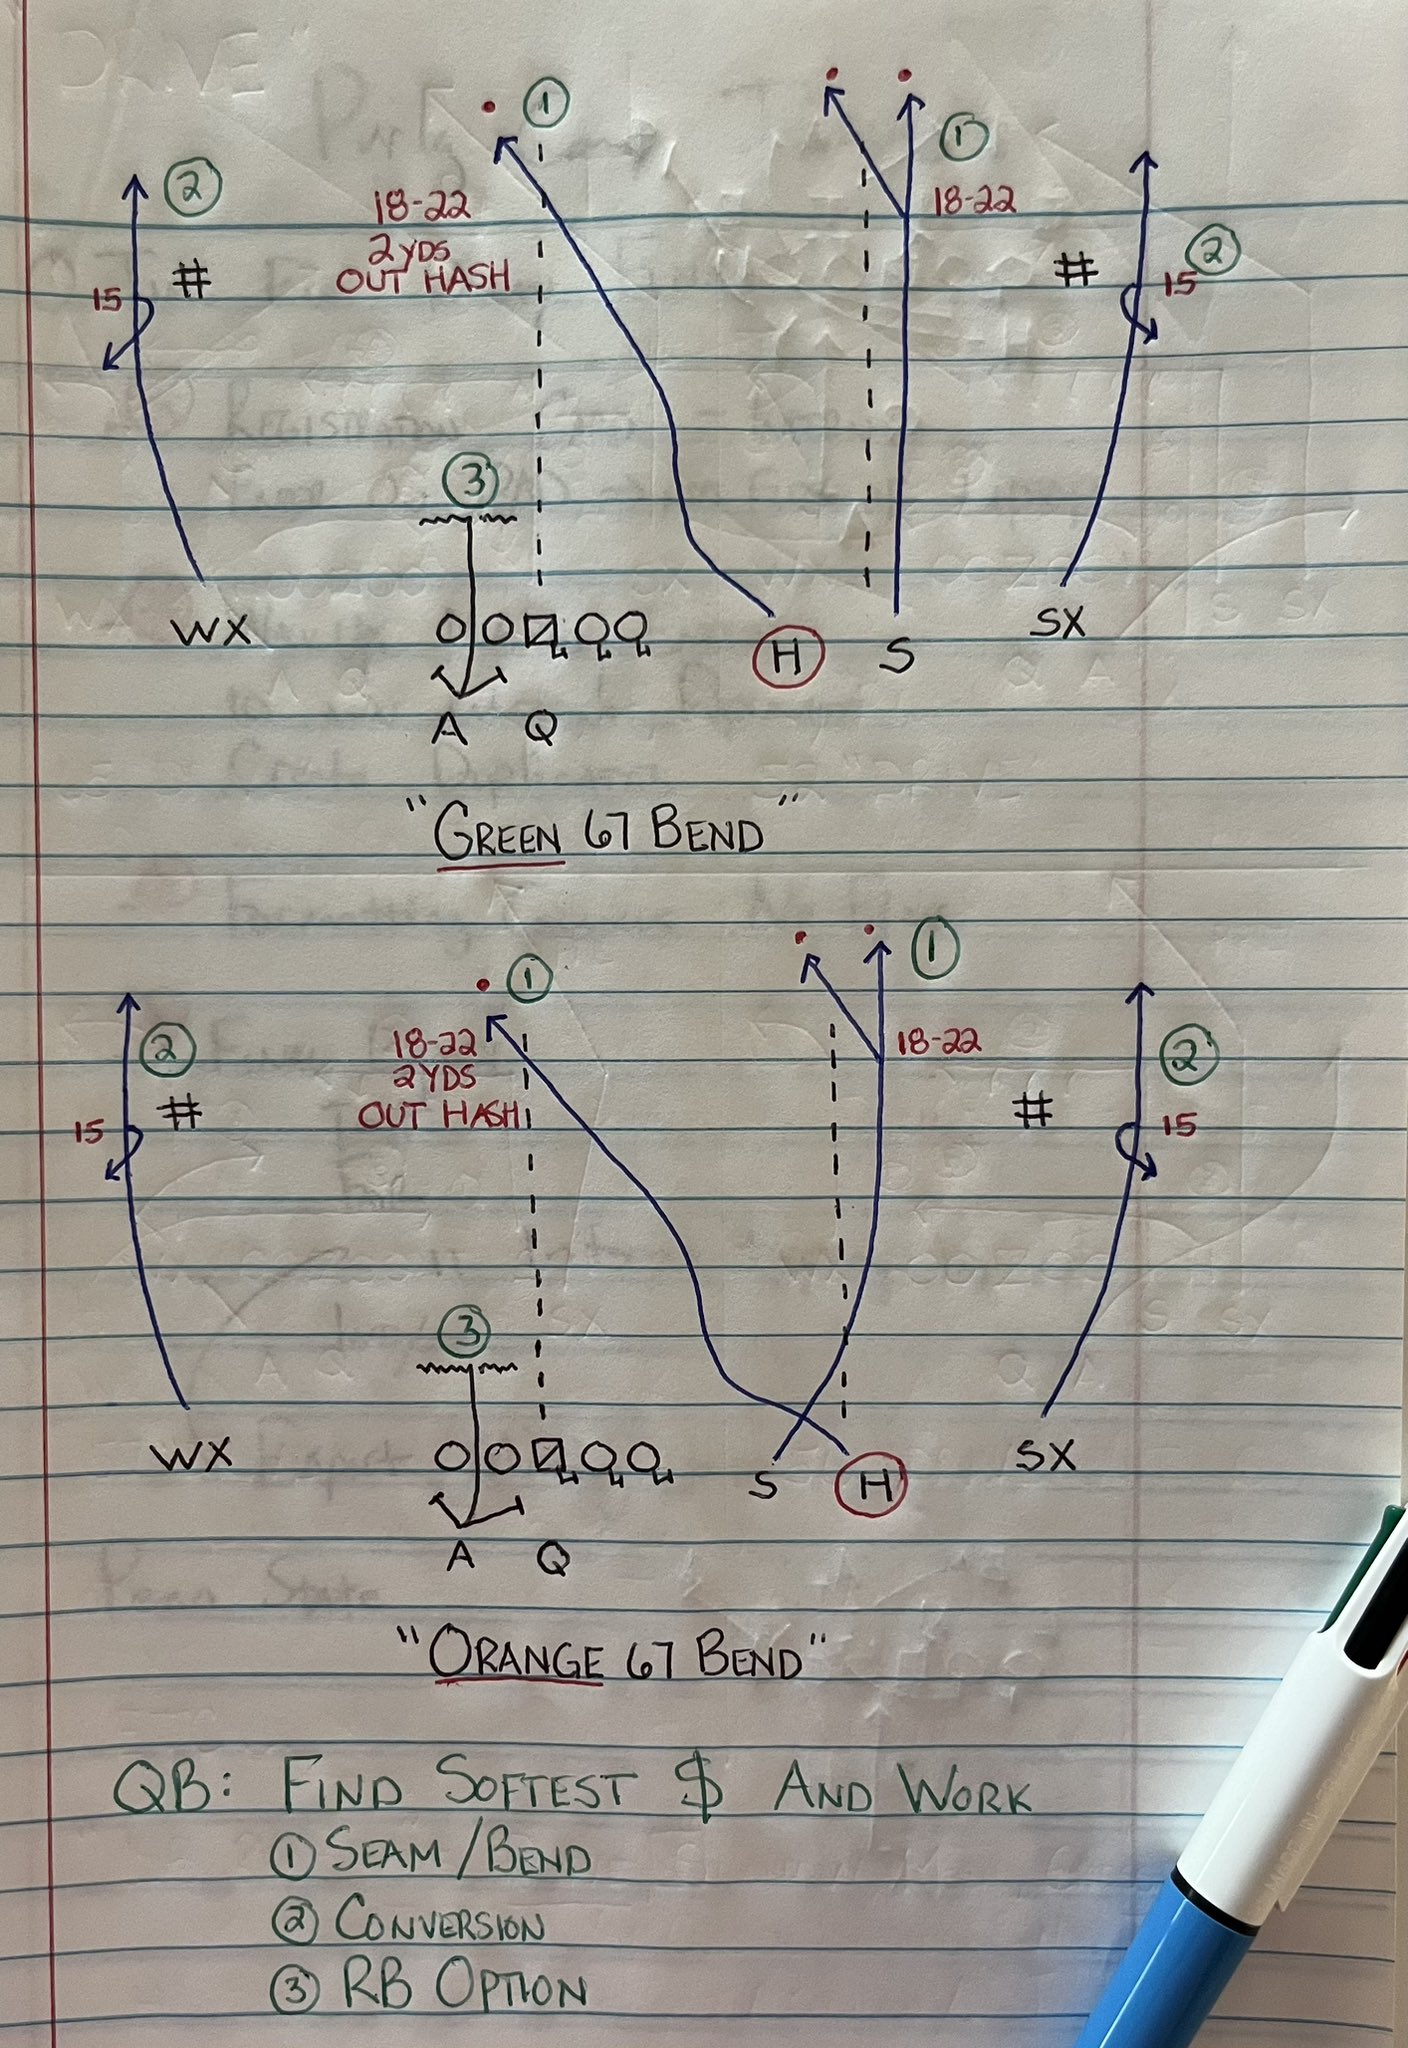 ①
②
①
18-22
2 YDS
OUT HASH
18-22
②
#
#
15
15
③
WX
SX
H
S
A
Q
"GREEN 67 BEND"
①
①
②
18-22
2 YDS
OUT HASH
18-22
②
#
#
15
15
③
WX
S
H
SX
A
Q
"ORANGE 67 BEND"
QB: FIND SOFTEST $ AND WORK
① SEAM/BEND
② CONVERSION
③ RB OPTION